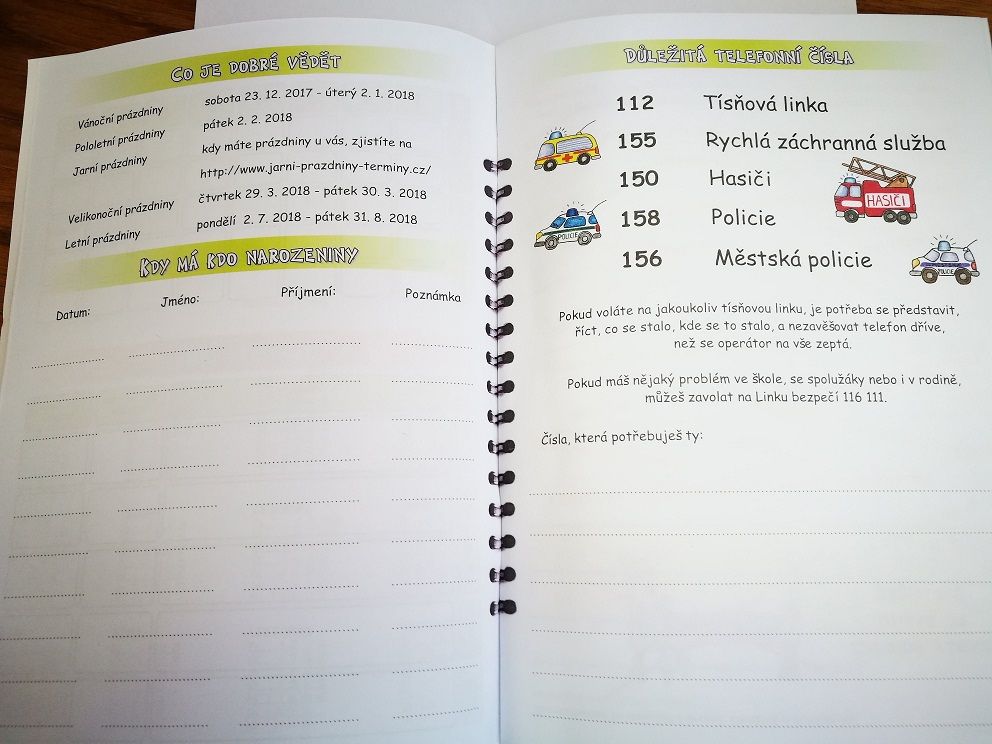 CO JE DOBRÉ VĚDĚT
Vánoční prázdniny sobota 23. 12. 2017 - úterý 2. 1. 2018
Pololetní prázdniny pátek 2. 2. 2018
Jarní prázdniny kdy máte prázdniny u vás, zjistíte na
http://www.jarni-prazdniny-terminy.cz/
Velikonoční prázdniny čtvrtek 29. 3. 2018 - pátek 30. 3. 2018
Letní prázdniny pondělí 2. 7. 2018 - pátek 31. 8. 2018
KDY MÁ KDO NAROZENINY
Datum: Jméno: Příjmení: Poznámka
DŮLEŽITÁ TELEFONNÍ ČÍSLA
112 Tísňová linka
155 Rychlá záchranná služba
150 Hasiči
HASIČI
158 Policie
POLICIE
156 Městská policie
POLICIE
Pokud voláte na jakoukoliv tísňovou linku, je potřeba se představit,
říct, co se stalo, kde se to stalo, a nezavěšovat telefon dříve,
než se operátor na vše zeptá.
Pokud máš nějaký problém ve škole, se spolužáky nebo i v rodině,
můžeš zavolat na Linku bezpečí 116 111.
Čísla, která potřebuješ ty: